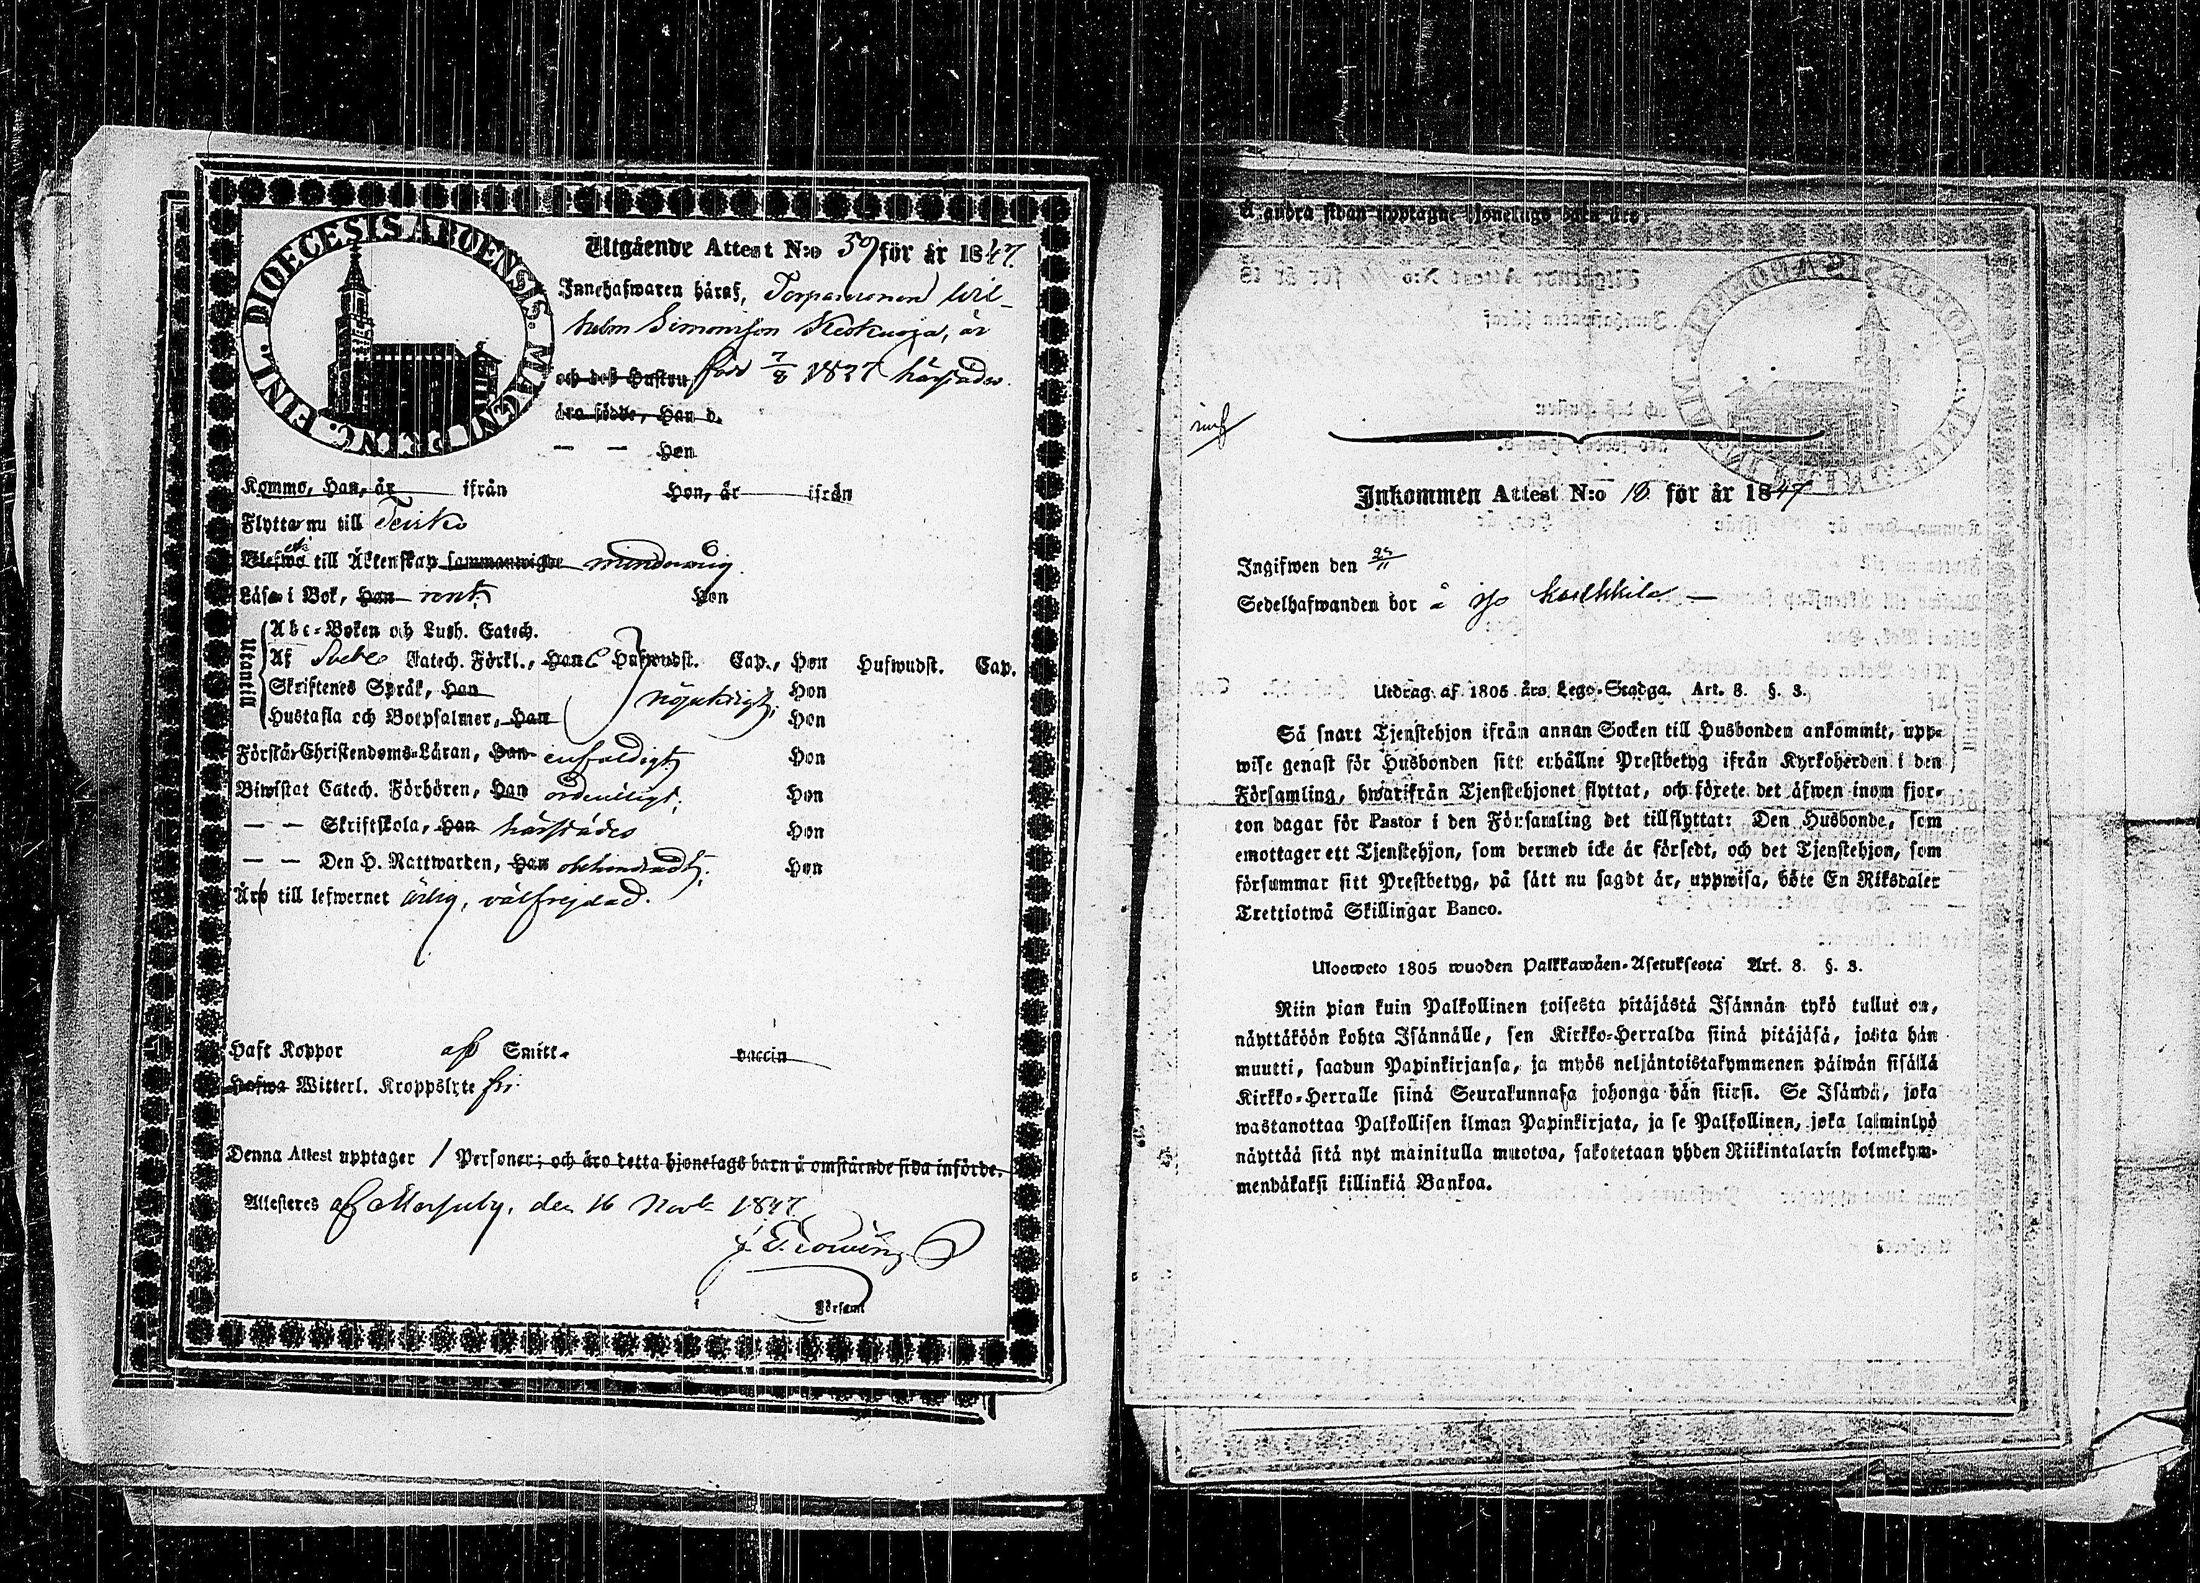 DIOECESIS ABOENSIS. MAGN. DUC. FINL.
Utgående Attest N:o 59 för år 1847.
Innehafwaren häraf, Torparsonen Wil-
helm Simonsson Keskuoja, är
och deß Hustru född 7/8 1827 härstädes.
äro födde, Han d.
— — Hon
Kommo, Han, är ifrån Hon, är ifrån
Flyttar nu till Teisko
Blefwo till Äktenskap sammanwigde minderårig.
Läsa i Bok, Han rent; Hon
Utanell
Abc-Boken och Luth. Catech.
Af Svebes Catech. Förkl., Han Hufwudst. Cap., Hon Hufwudst. Cap.
Skriftenes Språk, Han nöjaktigt; Hon
Hustafla och Botpsalmer, Han Hon
Förstå Christendoms-Läran, Han enfaldigt; Hon
Biwistat Catech. Förhören, Han ordentligt; Hon
— — Skriftskola, Han härstädes Hon
— — Den H. Nattwarden, Han obehindradt; Hon
Äro till lefwernet ärlig, välfrejdad.
Haft Koppor af Smitt- vaccin
Hafwa Witterl. Kroppslyte fri
Denna Attest upptager 1 Personer; och äro detta hjonelags barn å omstående sida införde.
Attesteras af Messuby, den 16 Nov. 1847.
Församl
å andra sidan upptagne hjonelags barn äro:
Inkommen Attest N:o 18 för år 1847
Ingifwen den 29/11
Sedelhafwanden bor å
Utdrag af 1805 års Lego-Stadga. Art. 8. §. 3.
Så snart Tjenstehjon ifrån annan Socken till Husbonden ankommit, upp-
wise genast för Husbonden sitt erhållne Prestbetyg ifrån Kyrkoherden i den
Församling, hwarifrån Tjenstehjonet flyttat, och förete det äfwen inom fjor-
ton dagar för Pastor i den Församling det tillflyttat: Den Husbonde, som
emottager ett Tjenstehjon, som dermed icke är försedt, och det Tjenstehjon, som
försummar sitt Prestbetyg, på sätt nu sagdt är, uppwisa, böte En Riksdaler
Trettiotwå Skillingar Banco.
Uloswето 1805 wuoden Palkkawäen-Asetuksesta Art. 8. §. 3.
Niin pian kuin Palkollinen toisesta pitäjästä Isännän tykö tullut on,
näyttäköön kohta Isännälle, sen Kirkko-Herralda siinä pitäjäsä, josta hän
muutti, saadun Papinkirjansa, ja myös neljäntoistakymmenen päiwän sisällä
Kirkko-Herralle siinä Seurakunnasa johonga hän siirsi. Se Isändä, joka
wastanottaa Palkollisen ilman Papinkirjata, ja se Palkollinen, joka laiminlyö
näyttää sitä nyt mainitulla muotoa, sakotetaan yhden Riikintalarin kolmekym-
mendäkaksi killinkiä Bankoa.